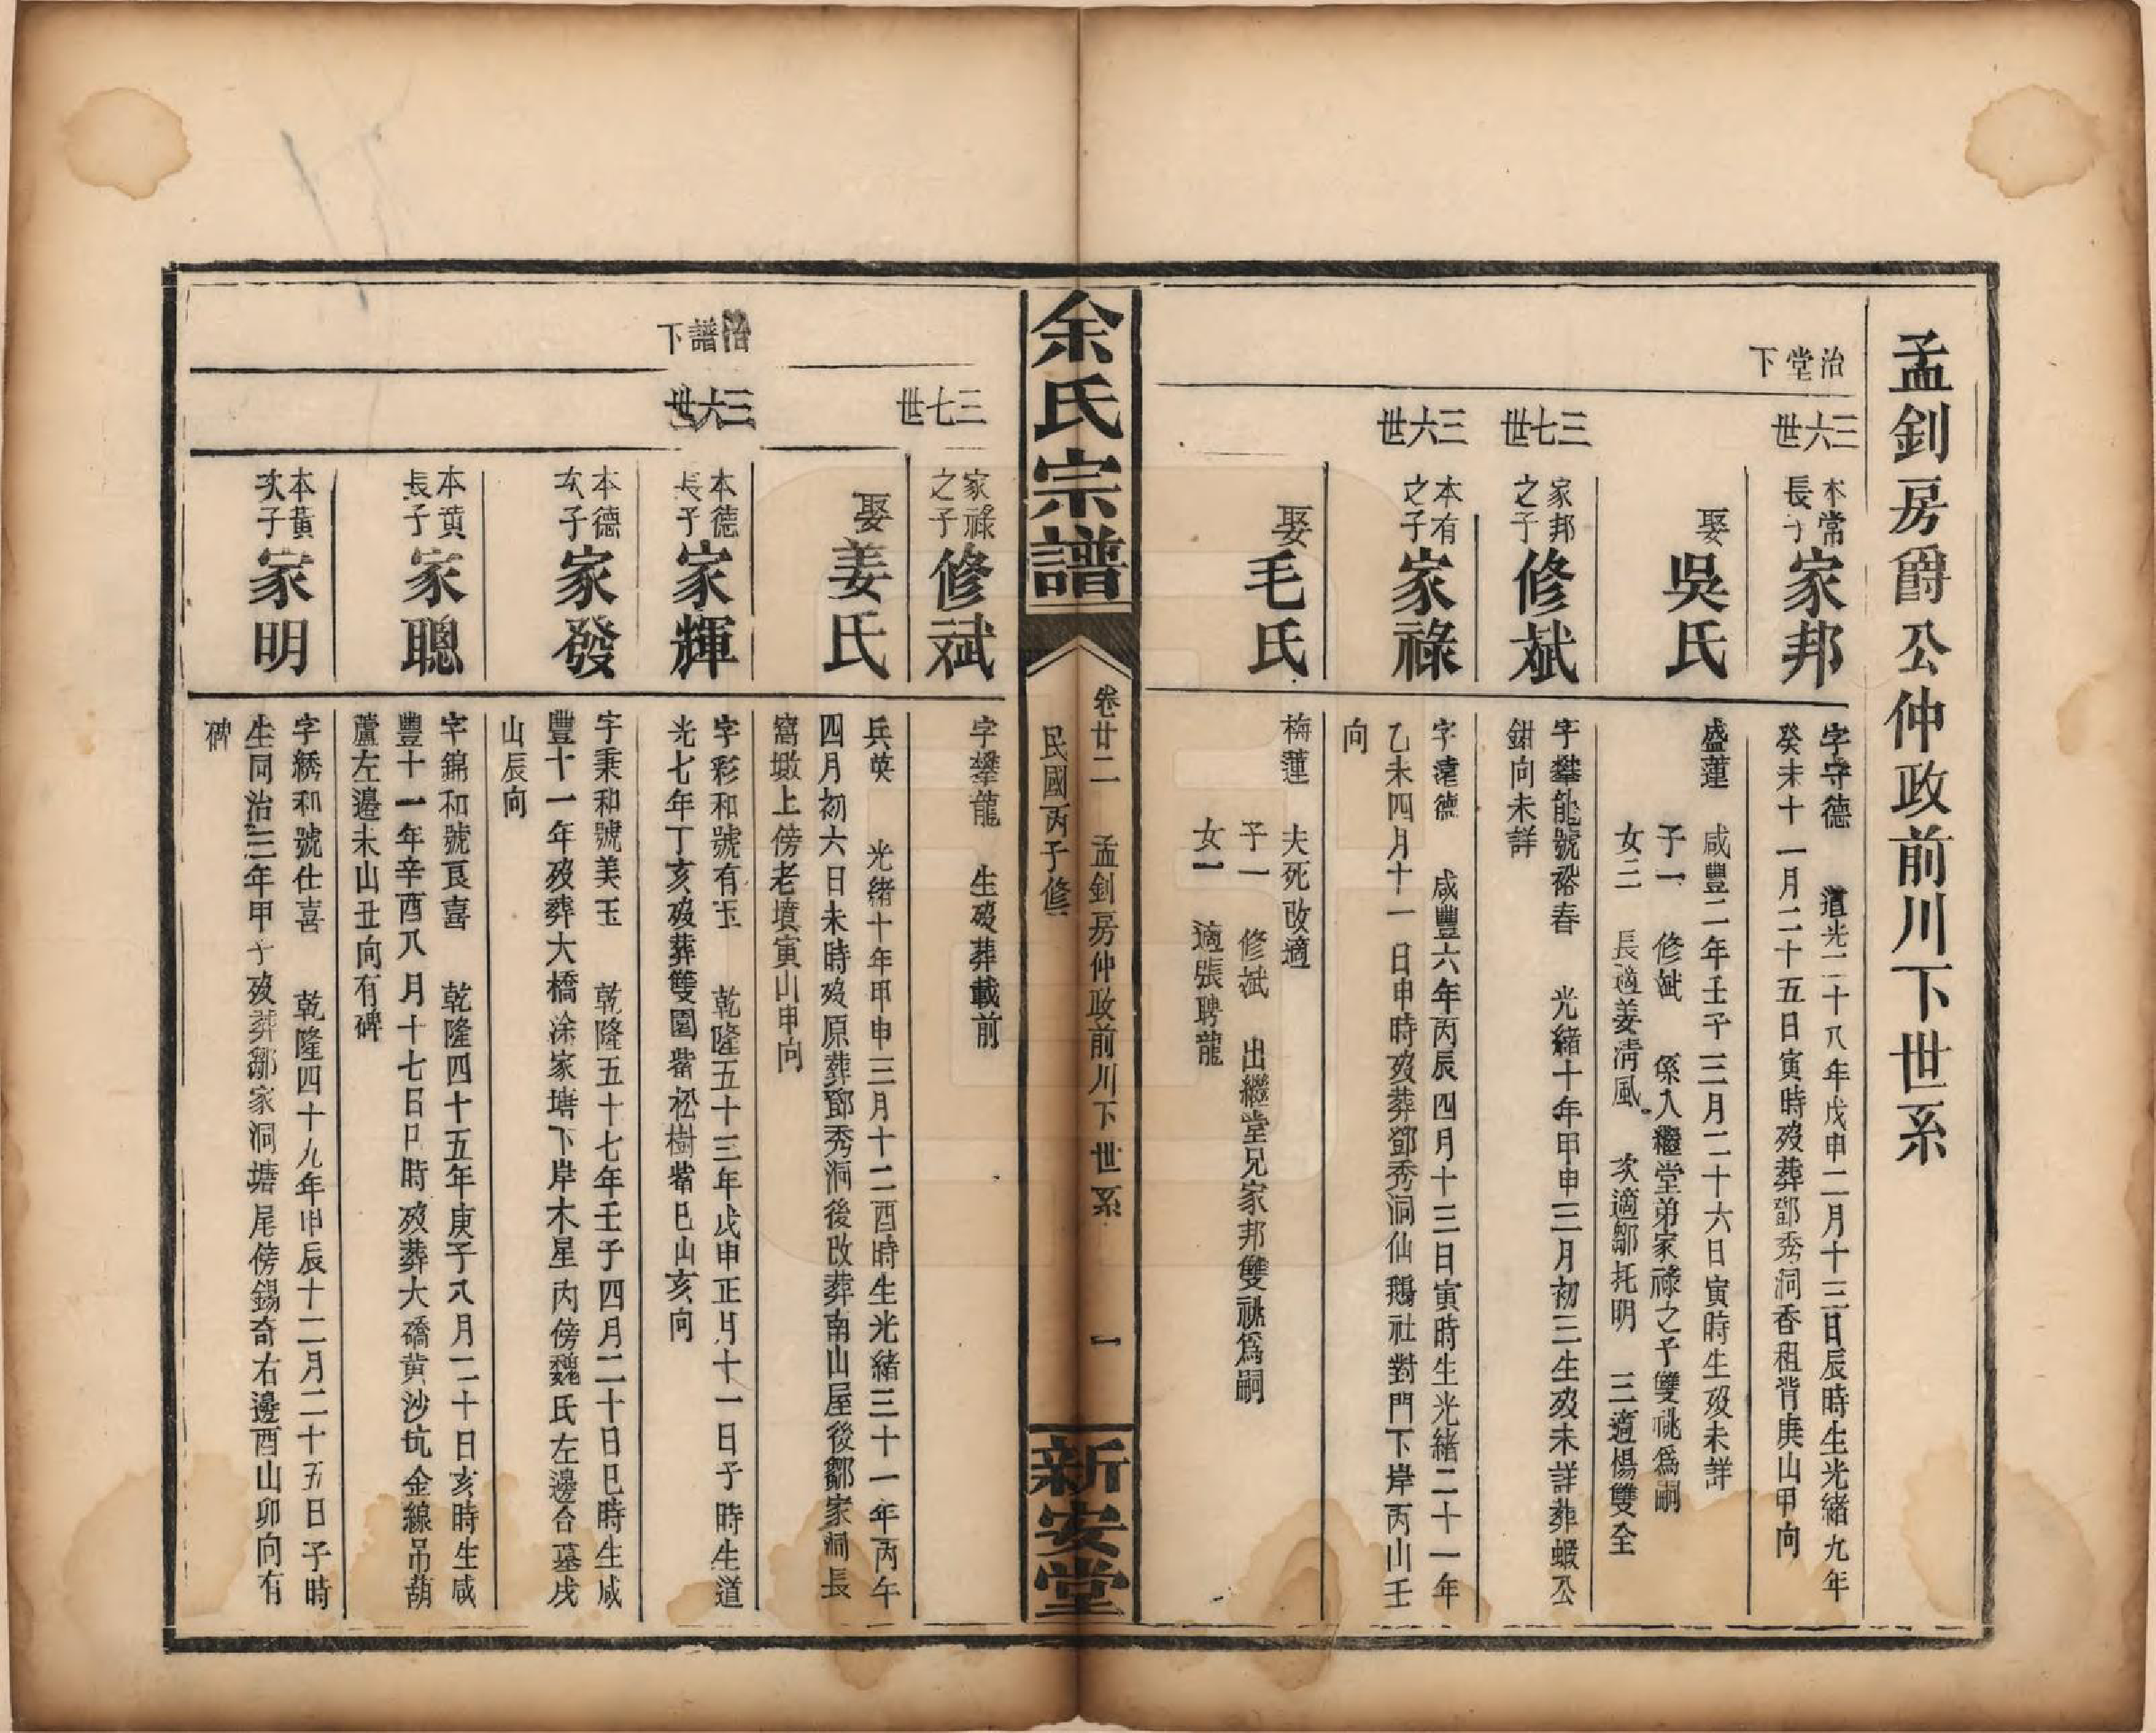 孟釗房爵公仲政前川下世系
治堂下
三六世
本常長子家邦
字守德 道光二十八年戊申二月十三日辰時生光緒九年
癸未十一月二十五日寅時歿葬鄧秀洞香租背庚山甲向
娶吳氏
盛蓮 咸豐二年壬子三月二十六日寅時生歿未詳
子一 修斌 係入繼堂弟家祿之子雙祧爲嗣
女三 長適姜淸風 次適鄒托明 三適楊雙全
三七世
家邦之子修斌
字攀龍號裕春 光緒十年甲申三月初三生歿未詳葬蝦公
鉗向未詳
三六世
本有之子家祿
字遠德 咸豐六年丙辰四月十三日寅時生光緒二十一年
乙未四月十一日申時歿葬鄧秀洞仙鵝社對門下岸丙山壬
向
娶毛氏
梅蓮 夫死改適
子一 修斌 出繼堂兄家邦雙祧爲嗣
女一 適張聘龍
余氏宗譜
卷廿二 孟釗房仲政前川下世系 一
民國丙子修
新安堂
三七世
家祿之子修斌
字攀龍 生歿葬載前
娶姜氏
兵英 光緒十年甲申三月十二酉時生光緒三十一年丙午
四月初六日未時歿原葬鄧秀洞後改葬南山屋後鄒家洞長
窩墩上傍老墳寅山申向
治譜下
三六世
本德長子家輝
字彩和號有玉 乾隆五十三年戊申正月十一日子時生道
光七年丁亥歿葬雙園觜松樹觜巳山亥向
本德次子家發
字秉和號美玉 乾隆五十七年壬子四月二十日巳時生咸
豐十一年歿葬大橋涂家塘下岸木星丙傍魏氏左邊合墓戌
山辰向
本黃長子家聰
字錦和號良喜 乾隆四十五年庚子八月二十日亥時生咸
豐十一年辛酉八月十七日 時歿葬大礄黃沙坑金線吊葫
蘆左邊未山丑向有碑
本黃次子家明
字綉和號仕喜 乾隆四十九年甲辰十二月二十五日子時
生同治三年甲子歿葬鄒家洞塘尾傍錫奇右邊酉山卯向有
碑